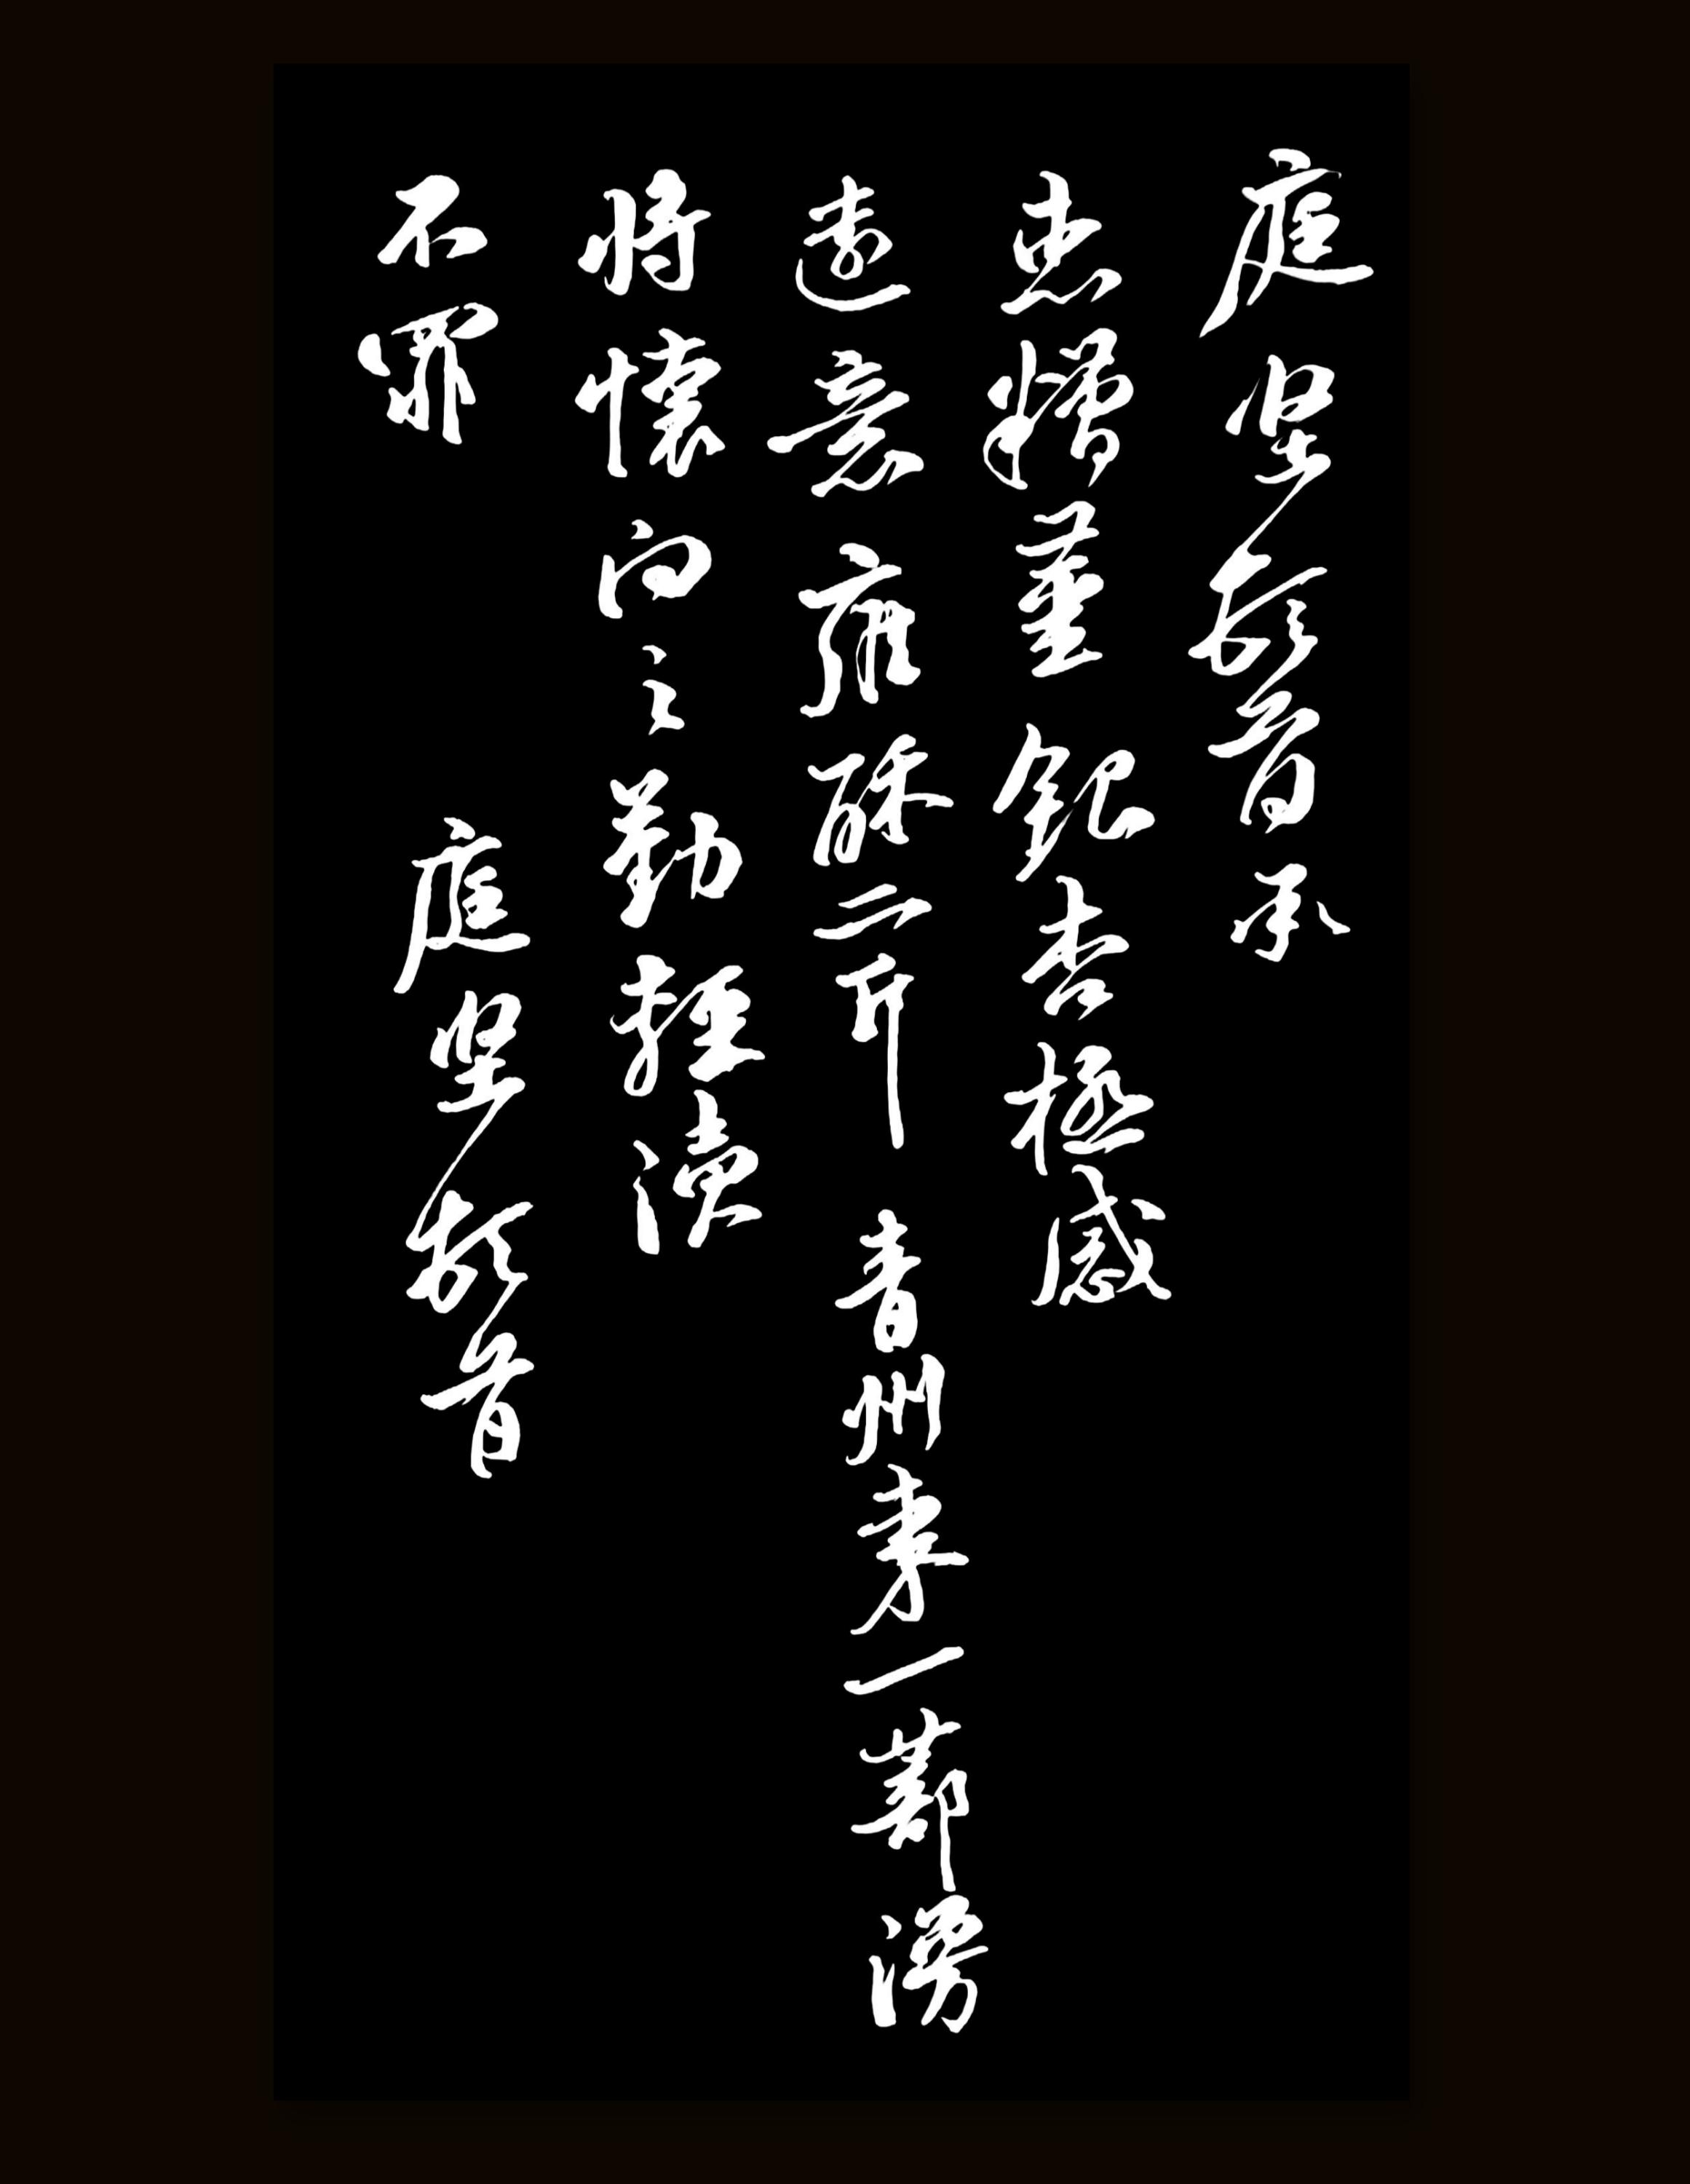 庭堅頓首承
惠糟薑銀杏極感
遠意雍酥二斤青州棗一蔀漫
將懷向之勤輕瀆
不罪庭堅頓首